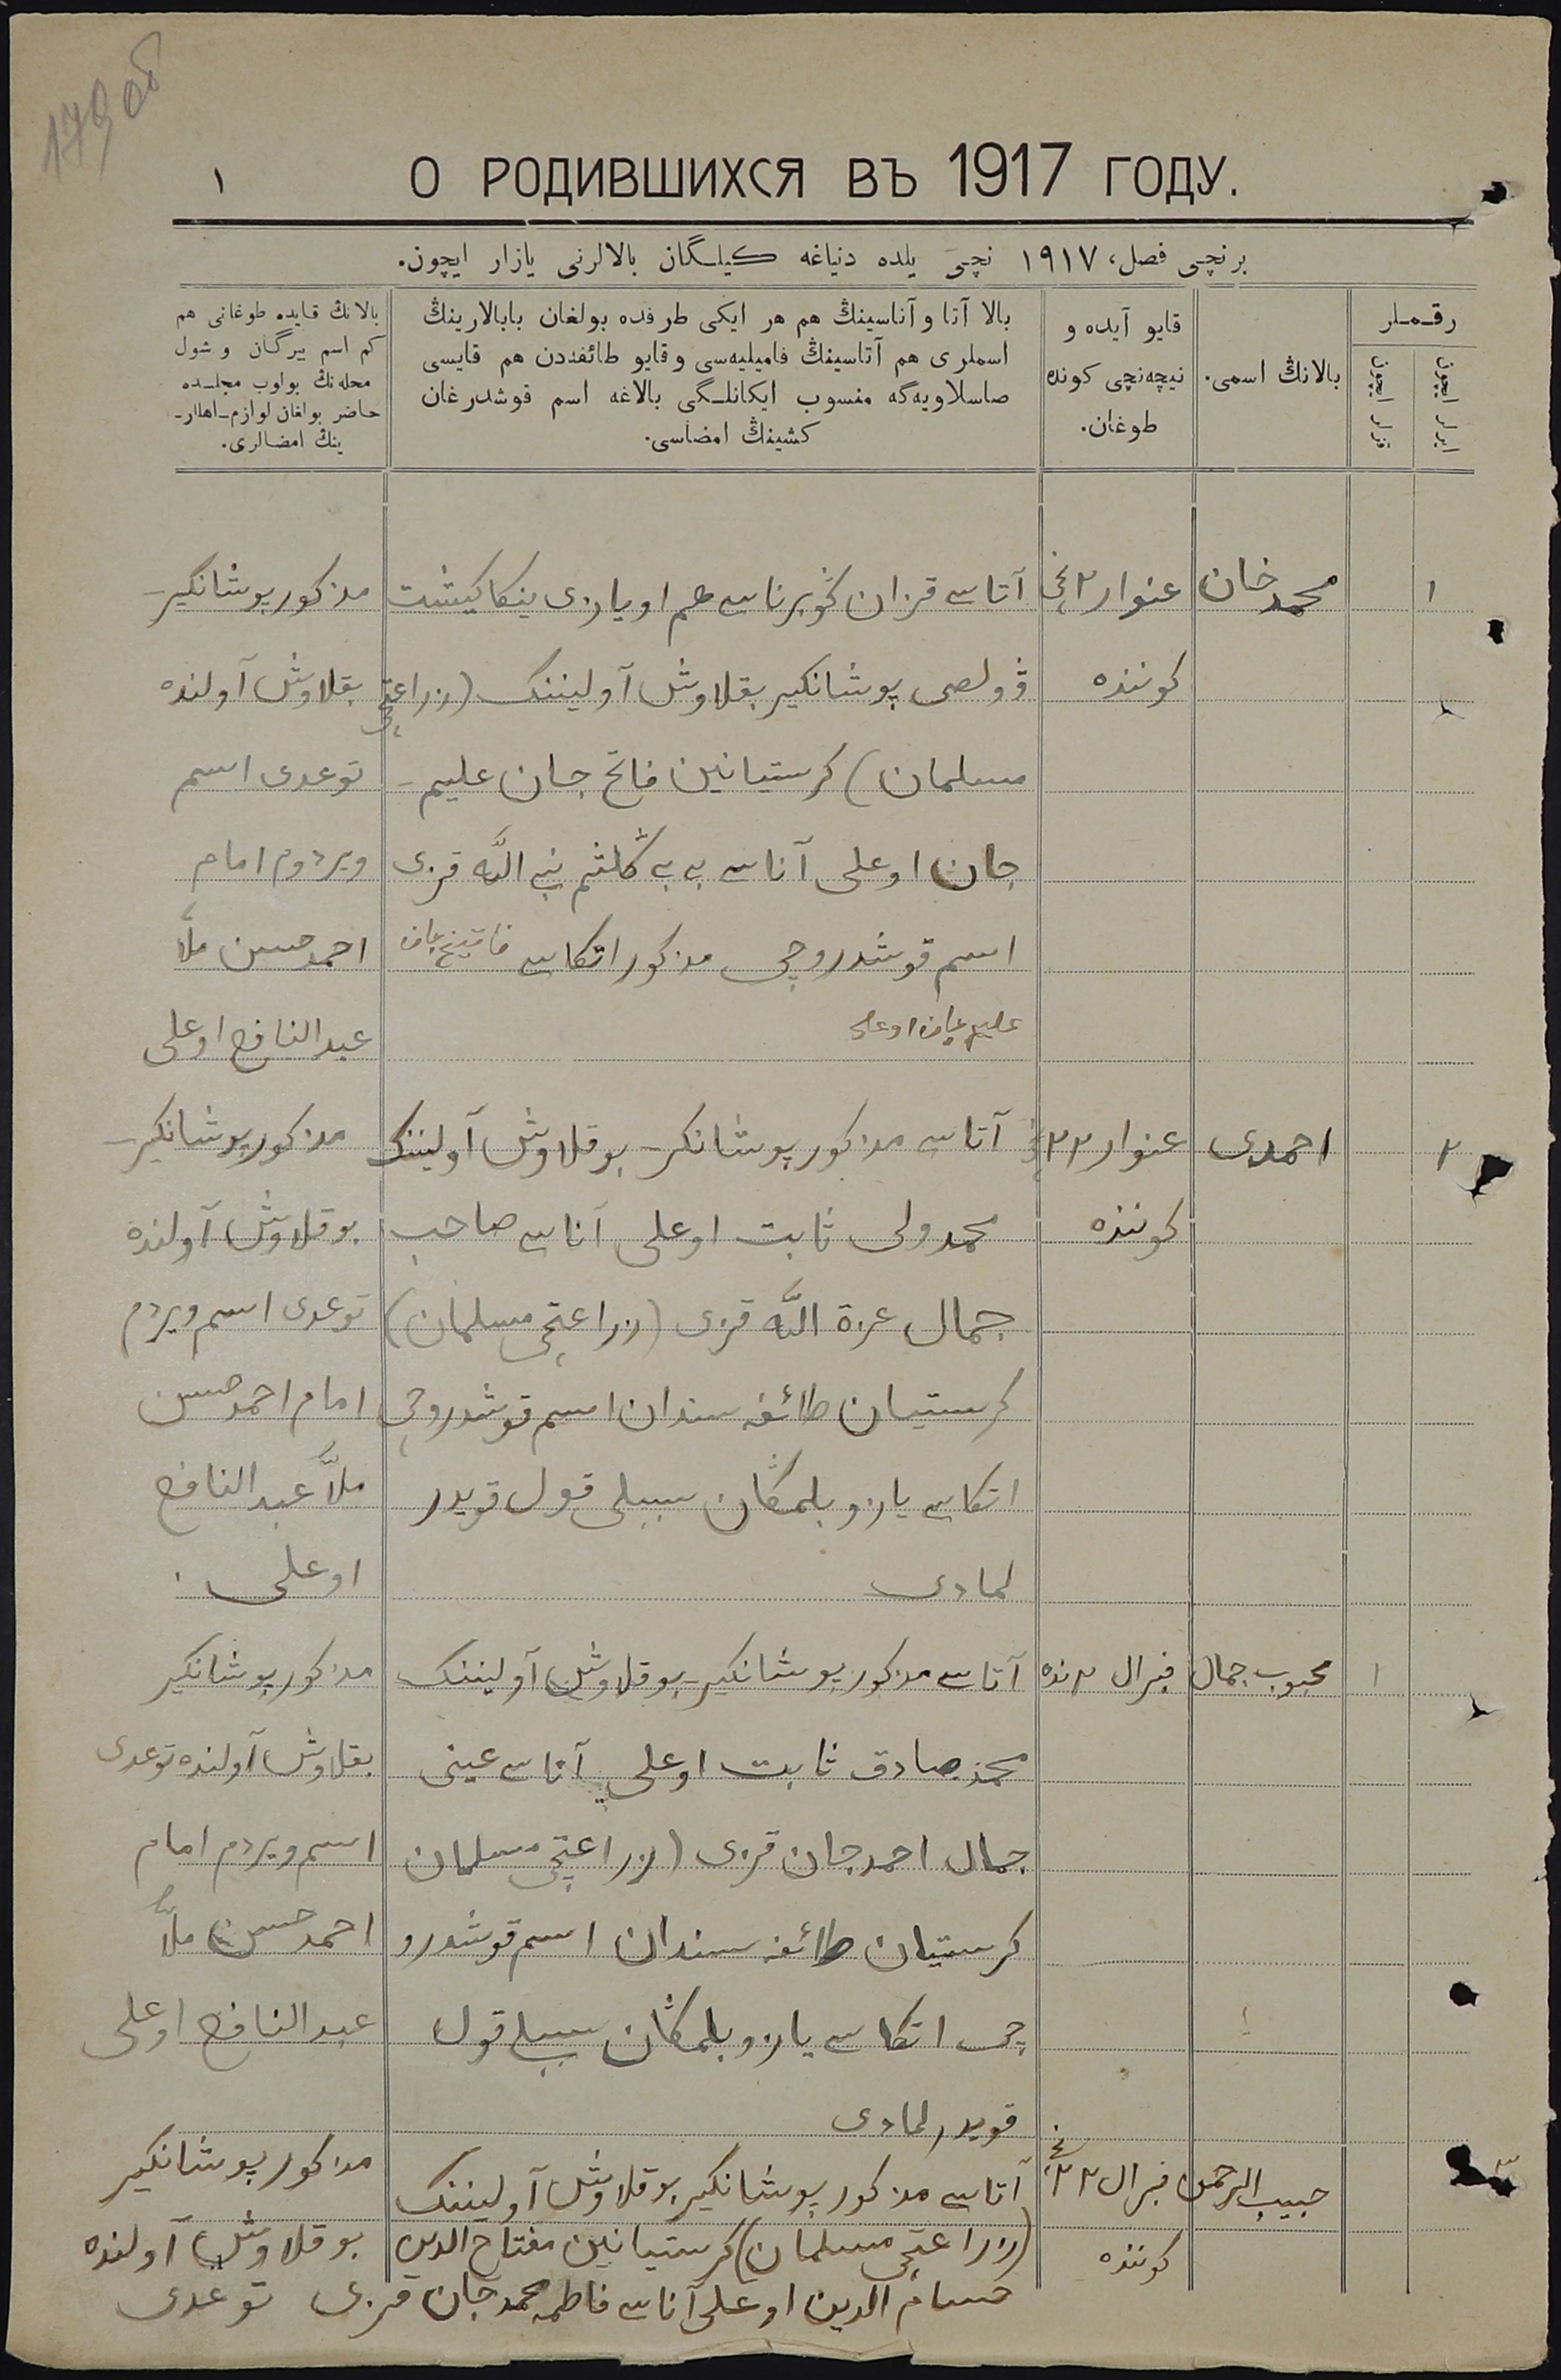 179 об
О РОДИВШИХСЯ ВЪ 1917 ГОДУ.
١
برنچی فصل، ١٩١٧ نچی یلده دنیاغه کیلگان بالالرنی یازار ایچون.
رقملر
ایرلر ایچون
قزلر ایچون
بالانڭ اسمی.
قایو آیده و
نیچه‌نچی کونده
طوغان.
بالا آتا و آناسینڭ هم هر ایکی طرفده بولغان بابالارینڭ
اسملری هم آتاسینڭ فامیلیه‌سی و قایو طائفه‌دن هم قایسی
صاسلاویه‌گه منسوب ایکانلگی بالاغه اسم قوشدرغان
کشینڭ امضاسی.
بالانڭ قایده طوغانی هم
کم اسم بیرگان و شول
محله‌نڭ بولوب مجلسده
حاضر بولغان لوازم-اهللر-
ینڭ امضالری.
١
محمد خان
عنوار ٢ نچی
کوننده
آتاسی قزان ڭوبرناسی هم اویازی ینکا کیشت
ڤولصی پوشانکیر بقلاوش آولیننک (زراعتچی
مسلمان) کرستیانین فاتح جان علیم-
جان اوعلی آناسی بی بی ڭلثم نبی الله قزی
اسم قوشدروچی مذکور اتکاسی فاتیح جان
علیم جان اوعلی
مذکور پوشانگیر-
بقلاوش آولنده
توعدی اسم
ویردوم امام
احمد حسن ملا
عبد النافع اوعلی
٢
احمدی
عنوار ٢٢ نچی
کوننده
آتاسی مذکور پوشانکر- بوقلاوش آولیننک
محمد ولی ثابت اوعلی آناسی صاحب
جمال عزة الله قزی (زراعتچی مسلمان)
کرستیان طائفه سندان اسم قوشدروچی
اتکاسی یازو بلمڭان سببلی قول قویدر
لمادی
مذکور پوشانکیر-
بوقلاوش آولنده
توعدی اسم ویردم
امام احمد حسن
ملا عبد النافع
اوعلی .
١
محبوب جمال
فبرال ٢ نده
آتاسی مذکور پوشانکیر- بوقلاوش آولیننک
محمد صادق ثابت اوعلی آناسی عینی
جمال احمد جان قزی (زراعتچی مسلمان
کرستیان طائفه سندان اسم قوشدرو
چی اتکاسی یازو بلمڭان سببلی قول
قویدرلمادی
مذکور پوشانکیر
بقلاوش آولنده توعدی
اسم ویردم امام
احمد حسن ملا
عبد النافع اوعلی
٣
حبیب الرحمن
فبرال ٢٢ نچی
کوننده
آتاسی مذکور پوشانکیر بوقلاوش آولیننک
(زراعتچی مسلمان) کرستیانین مفتاح الدین
حسام الدین اوعلی آناسی فاطمه محمد جان قزی
مذکور پوشانکیر
بوقلاوش آولنده
توعدی